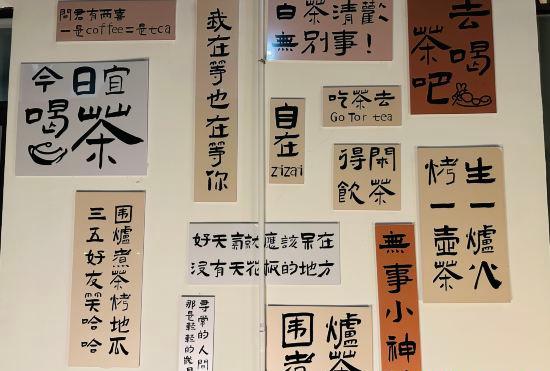 問君有兩喜
一是coffee二是tea
我在等也在等你
白茶清歡
無別事!
去喝
茶吧
今日宜
喝茶
自在
zizai
吃茶去
Go for tea
得閑
飲茶
生一爐火
烤一壺茶
围爐煮茶烤地瓜
三五好友笑哈哈
好天氣就應該呆在
沒有天花板的地方
無事小神
尋常的人間
那是輕輕的
围爐
煮茶